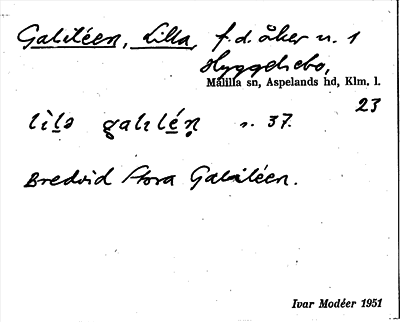 Galiléen, Lilla, f.d. åker n. 1
Hyggebebo,
Målilla sn, Aspelands hd, Klm. l.
23
lìlɑ galɩlén s. 37.
Bredvid Stora Galiléen.
Ivar Modéer 1951